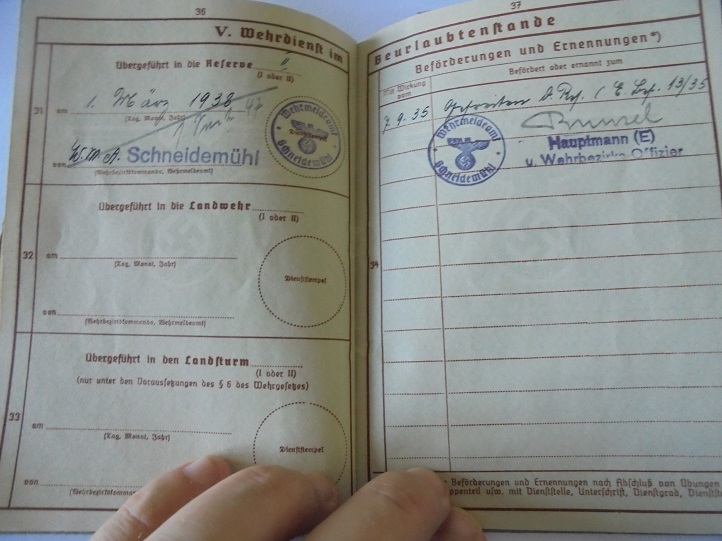 36
V. Wehrdienst im
Übergeführt in die Reserve II
(I oder II)
31
am 1. März 1938
(Tag, Monat, Jahr)
W.M.A. Schneidemühl
von
(Wehrbezirkskommando, Wehrmeldeamt)
Wehrmeldeamt
Schneidemühl
Übergeführt in die Landwehr
(I oder II)
32
am
(Tag, Monat, Jahr)
Dienststempel
von
(Wehrbezirkskommando, Wehrmeldeamt)
Übergeführt in den Landsturm
(I oder II)
(nur unter den Voraussetzungen des § 6 des Wehrgesetzes)
33
am
(Tag, Monat, Jahr)
Dienststempel
von
(Wehrbezirkskomman
37
Beurlaubtenstande
Beförderungen und Ernennungen*)
Mit Wirkung vom
Befördert oder ernannt zum
7.9.35 Gefreiten d. Res. 13/35
Wehrmeldeamt
Schneidemühl
Hauptmann (E)
u. Wehrbezirks-Offizier
34
Beförderungen und Ernennungen nach Abschluß von Übungen
ppenteil usw. mit Dienststelle, Unterschrift, Dienstgrad, Dienstst